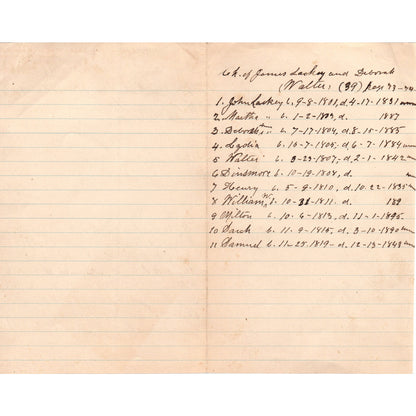 Ch. of James Lackey and Deborah
Walter: (39) page 73-74
1. John Lackey b. 9-8-1801, d. 4-17-1831
2 Martha " b. 1-2-1803, d. 1887
3 Deborah " b. 7-17-1804, d. 8-10-1885
4. Lydia b. 10-7-1805, d. 6-7-1884
5 Walter b. 3-23-1807, d. 2-1-1842
6 Dinsmore b. 10-19-1808, d.
7 Henry b. 5-9-1810, d. 10-22-1835
8 William W. b. 10-31-1811. d. 189
9 Milton b. 10-4-1813, d. 11-1-1895.
10 Sarah b. 11-9-1815, d. 3-10-1890
11 Samuel b. 11-25-1819- d. 12-13-1843